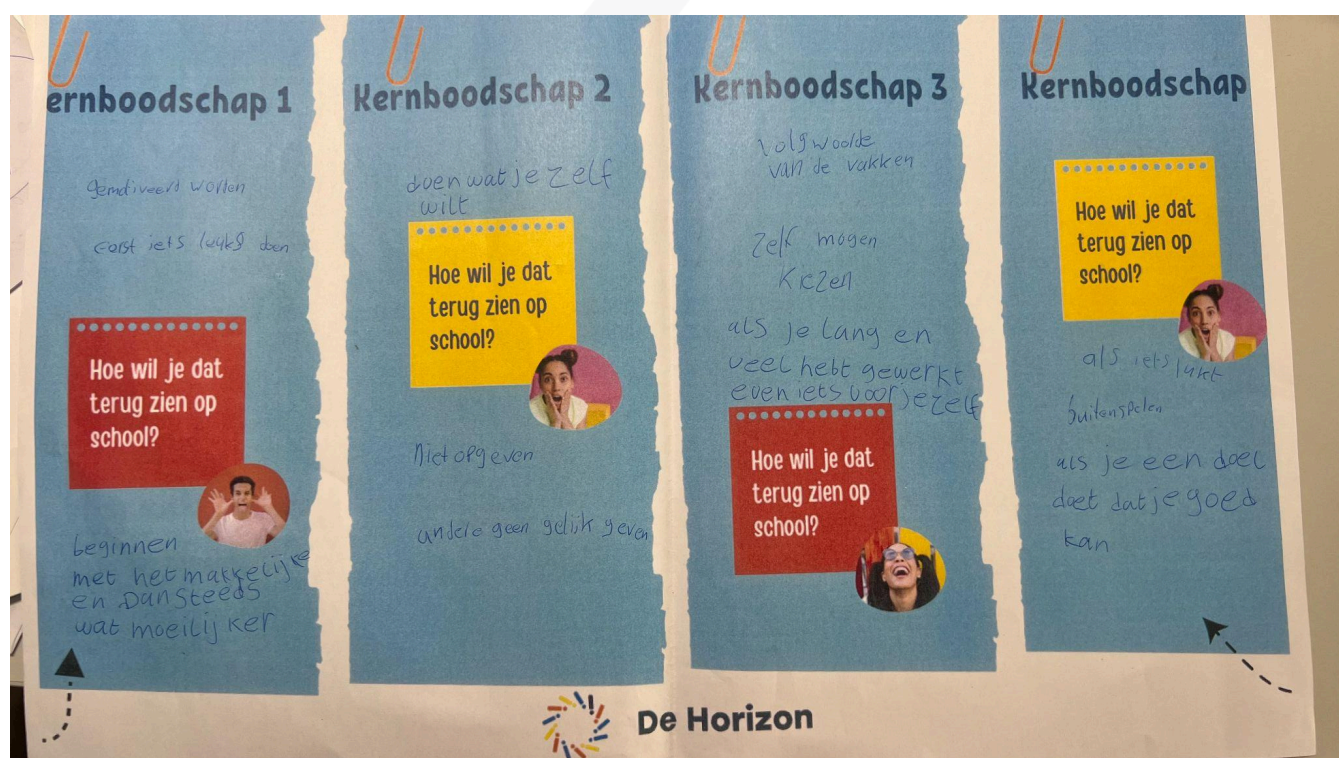 ernboodschap 1
gemdiveerd worden
eerst iets leuks doen
Hoe wil je dat
terug zien op
school?
beginnen
met het makkelijke
en Dan Steeds
wat moeilijker
Kernboodschap 2
doen wat je zelf
wilt
Hoe wil je dat
terug zien op
school?
Niet opgeven
andere geen gelijk geven
Kernboodschap 3
volgwoolde
van de vakken
Zelf mogen
Kiezen
als je lang en
veel hebt gewerkt
even iets voor jezelf
Hoe wil je dat
terug zien op
school?
Kernboodschap
Hoe wil je dat
terug zien op
school?
als iets lukt
buitenspelen
als je een doel
doet dat je goed
kan
De Horizon